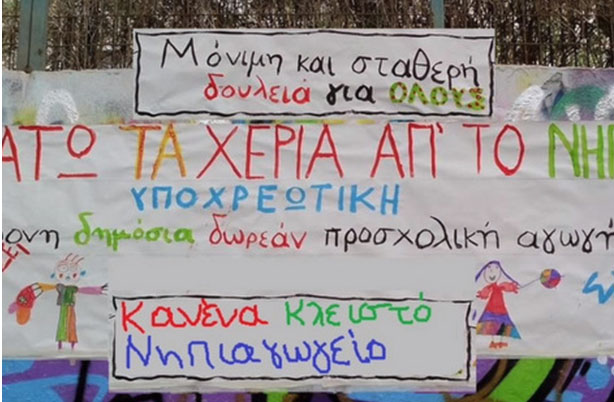 Μόνιμη και σταθερή
δουλειά για ΟΛΟΥΣ
ΑΤΩ ΤΑ ΧΕΡΙΑ ΑΠ' ΤΟ ΝΗΠ
ΥΠΟΧΡΕΩΤΙΚΗ
ρονη δημόσια δωρεάν προσχολική αγωγή
Κανένα Κλειστό
Νηπιαγωγείο